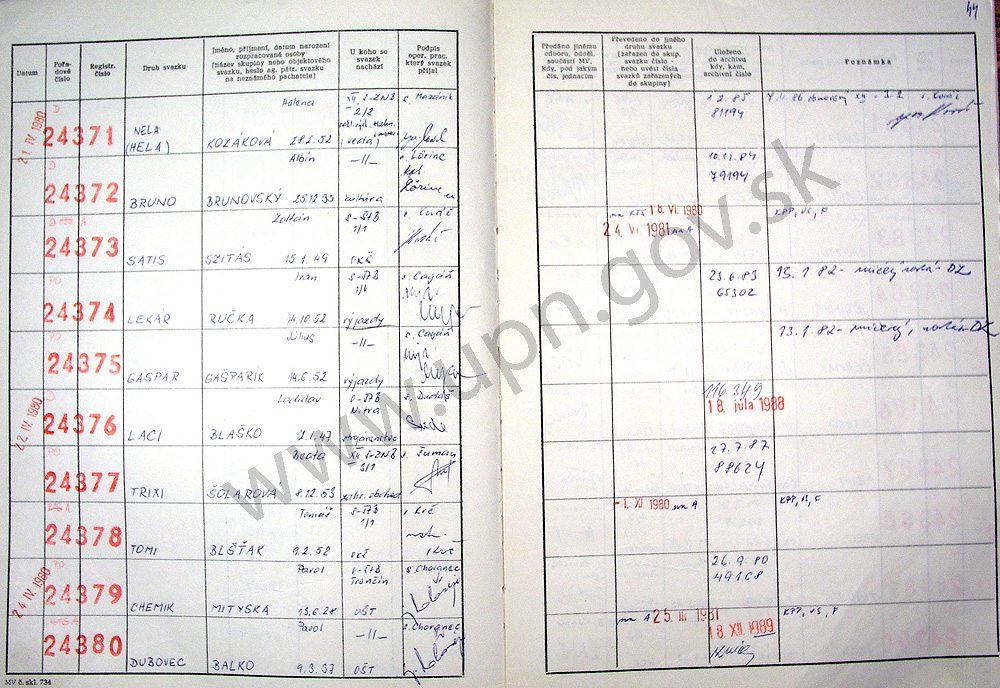 44
Datum
Pořadové číslo
Registr. číslo
Druh svazku
Jméno, příjmení, datum narození
rozpracované osoby
(název skupiny nebo objektového
svazku, heslo ag. pátr. svazku
na neznámého pachatele)
U koho se
svazek
nachází
Podpis
oper. prac.
který svazek
přijal
Předáno jinému
odboru, odděl.
součásti MV,
kdy, pod jakým
čís. jednacím
Převedeno do jiného
druhu svazku
(zařazen do skup.
svazku číslo -
nebo uvést čísla
svazků zařazených
do skupiny)
Uloženo
do archivu
kdy, kam,
archivní číslo
Poznámka
21. IV. 1980
D
24371
NELA
(HELA)
Helena
KOZÁKOVÁ 28.2.52
XII. S-ZNB
2/2
(veda)
s. Mazánik
1 2. 85
81194
D
24372
BRUNO
Albín
BRUNOVSKÝ 25.12.35
-11-
kultúra
s. Lörinc
10.11.84
79194
A
24373
SATIS
Zoltán
SZITÁS 15.1.49
S-ŠTB
1/1
OKČ
s. Kováč
na KTS 18. VI. 1980
24. VI. 1981 na A
KPP, VS, F
PO
24374
LEKÁR
Ivan
RUČKA 14.10.52
S-ŠTB
1/1
výjazdy
s. Cagáň
23.6.83
65302
13.1.82-
PO
24375
GAŠPAR
Július
GAŠPARÍK 14.6.52
-11-
výjazdy
s. Cagáň
13.1.82-
22. IV. 1980
D
24376
LACI
Ladislav
BLAŠKO
O-ŠTB
Nitra
s. Dudáš
116 349
18. júla 1988
PO
24377
TRIXI
Beata
ŠOLÁROVÁ 8.12.53
XII S-ZNB
3/1
zahr. obchod
s. Šuman
27.7.87
88624
A
24378
TOMI
Tomáš
BLŠŤÁK 9.2.52
S-ŠTB
1/1
OKČ
s. Krč
-1. XI. 1980 na A
KPP, VS, F
24. IV. 1980
PO
24379
CHEMIK
Pavol
MITYSKA 13.6.28
O-ŠTB
Trenčín
OŠT
s. Chorgnec
26.9.80
49168
A
24380
DUBOVEC
Pavol
BALKO 9.3.37
-11-
OŠT
s. Chorgnec
na A 25. III. 1981
18. XII. 1989
KPP, VS, F
MV č. skl. 734
www.upn.gov.sk